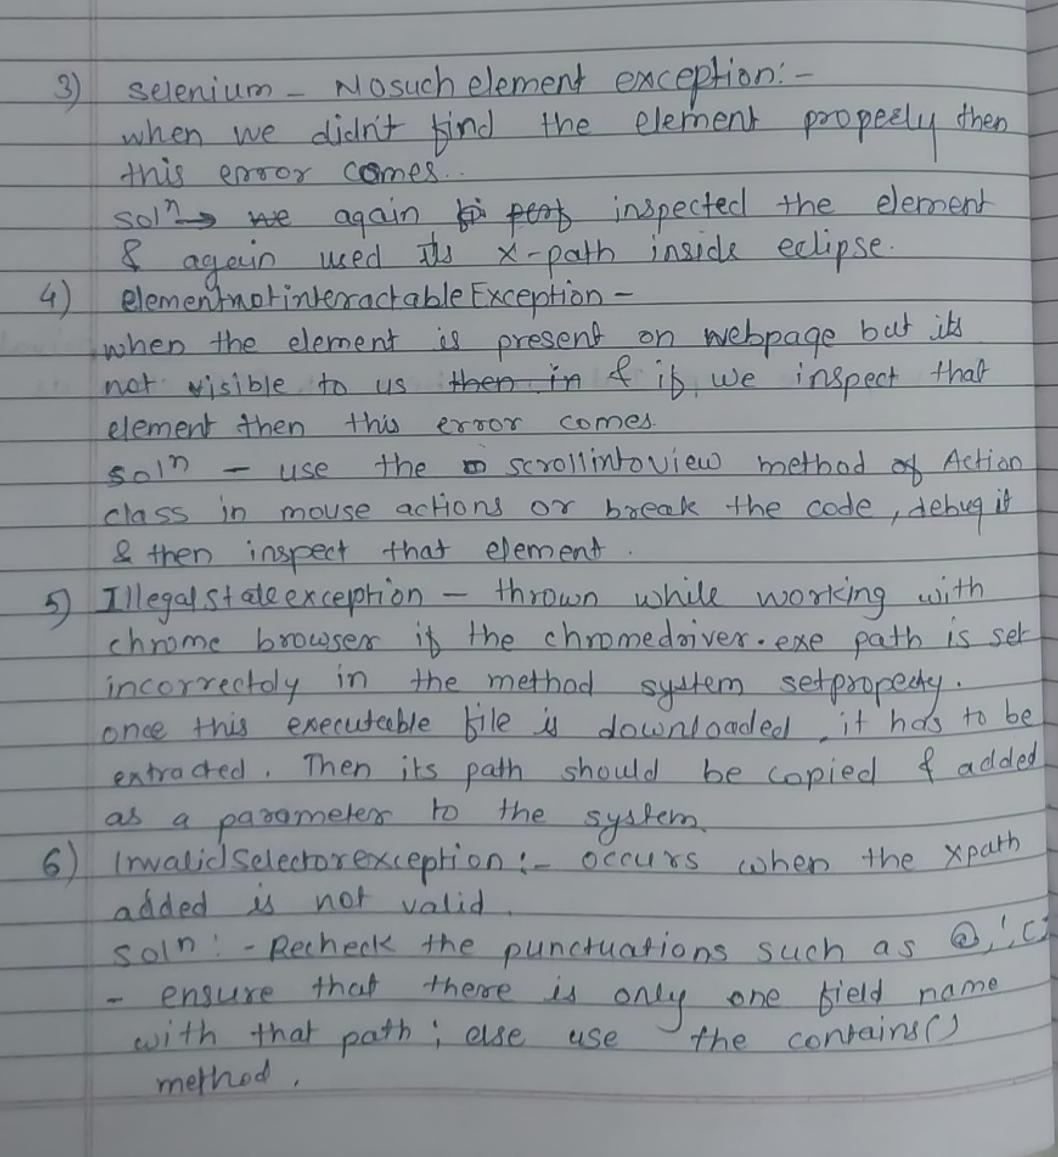 3) selenium - Nosuch element exception:-
when we didn't find the element properly then
this error comes..
soln → we again inspected the element
& again used its x-path inside eclipse.
4) elementnotinteractableException -
when the element is present on webpage but its
not visible to us then in & if, we inspect that
element then this error comes.
soln - use the scrollintoview method of Action
class in mouse actions or break the code, debug it
& then inspect that element.
5) Illegalstateexception - thrown while working with
chrome browser if the chromedriver.exe path is set
incorrectoly in the method system setproperty.
once this executeable file is downloaded, it has to be
extracted. Then its path should be copied & added
as a parameter to the system.
6) InvalidSelectorexception:- occurs when the xpath
added is not valid.
soln:- Recheck the punctuations such as @, ', []
- ensure that there is only one field name
with that path; else use the contains()
method.